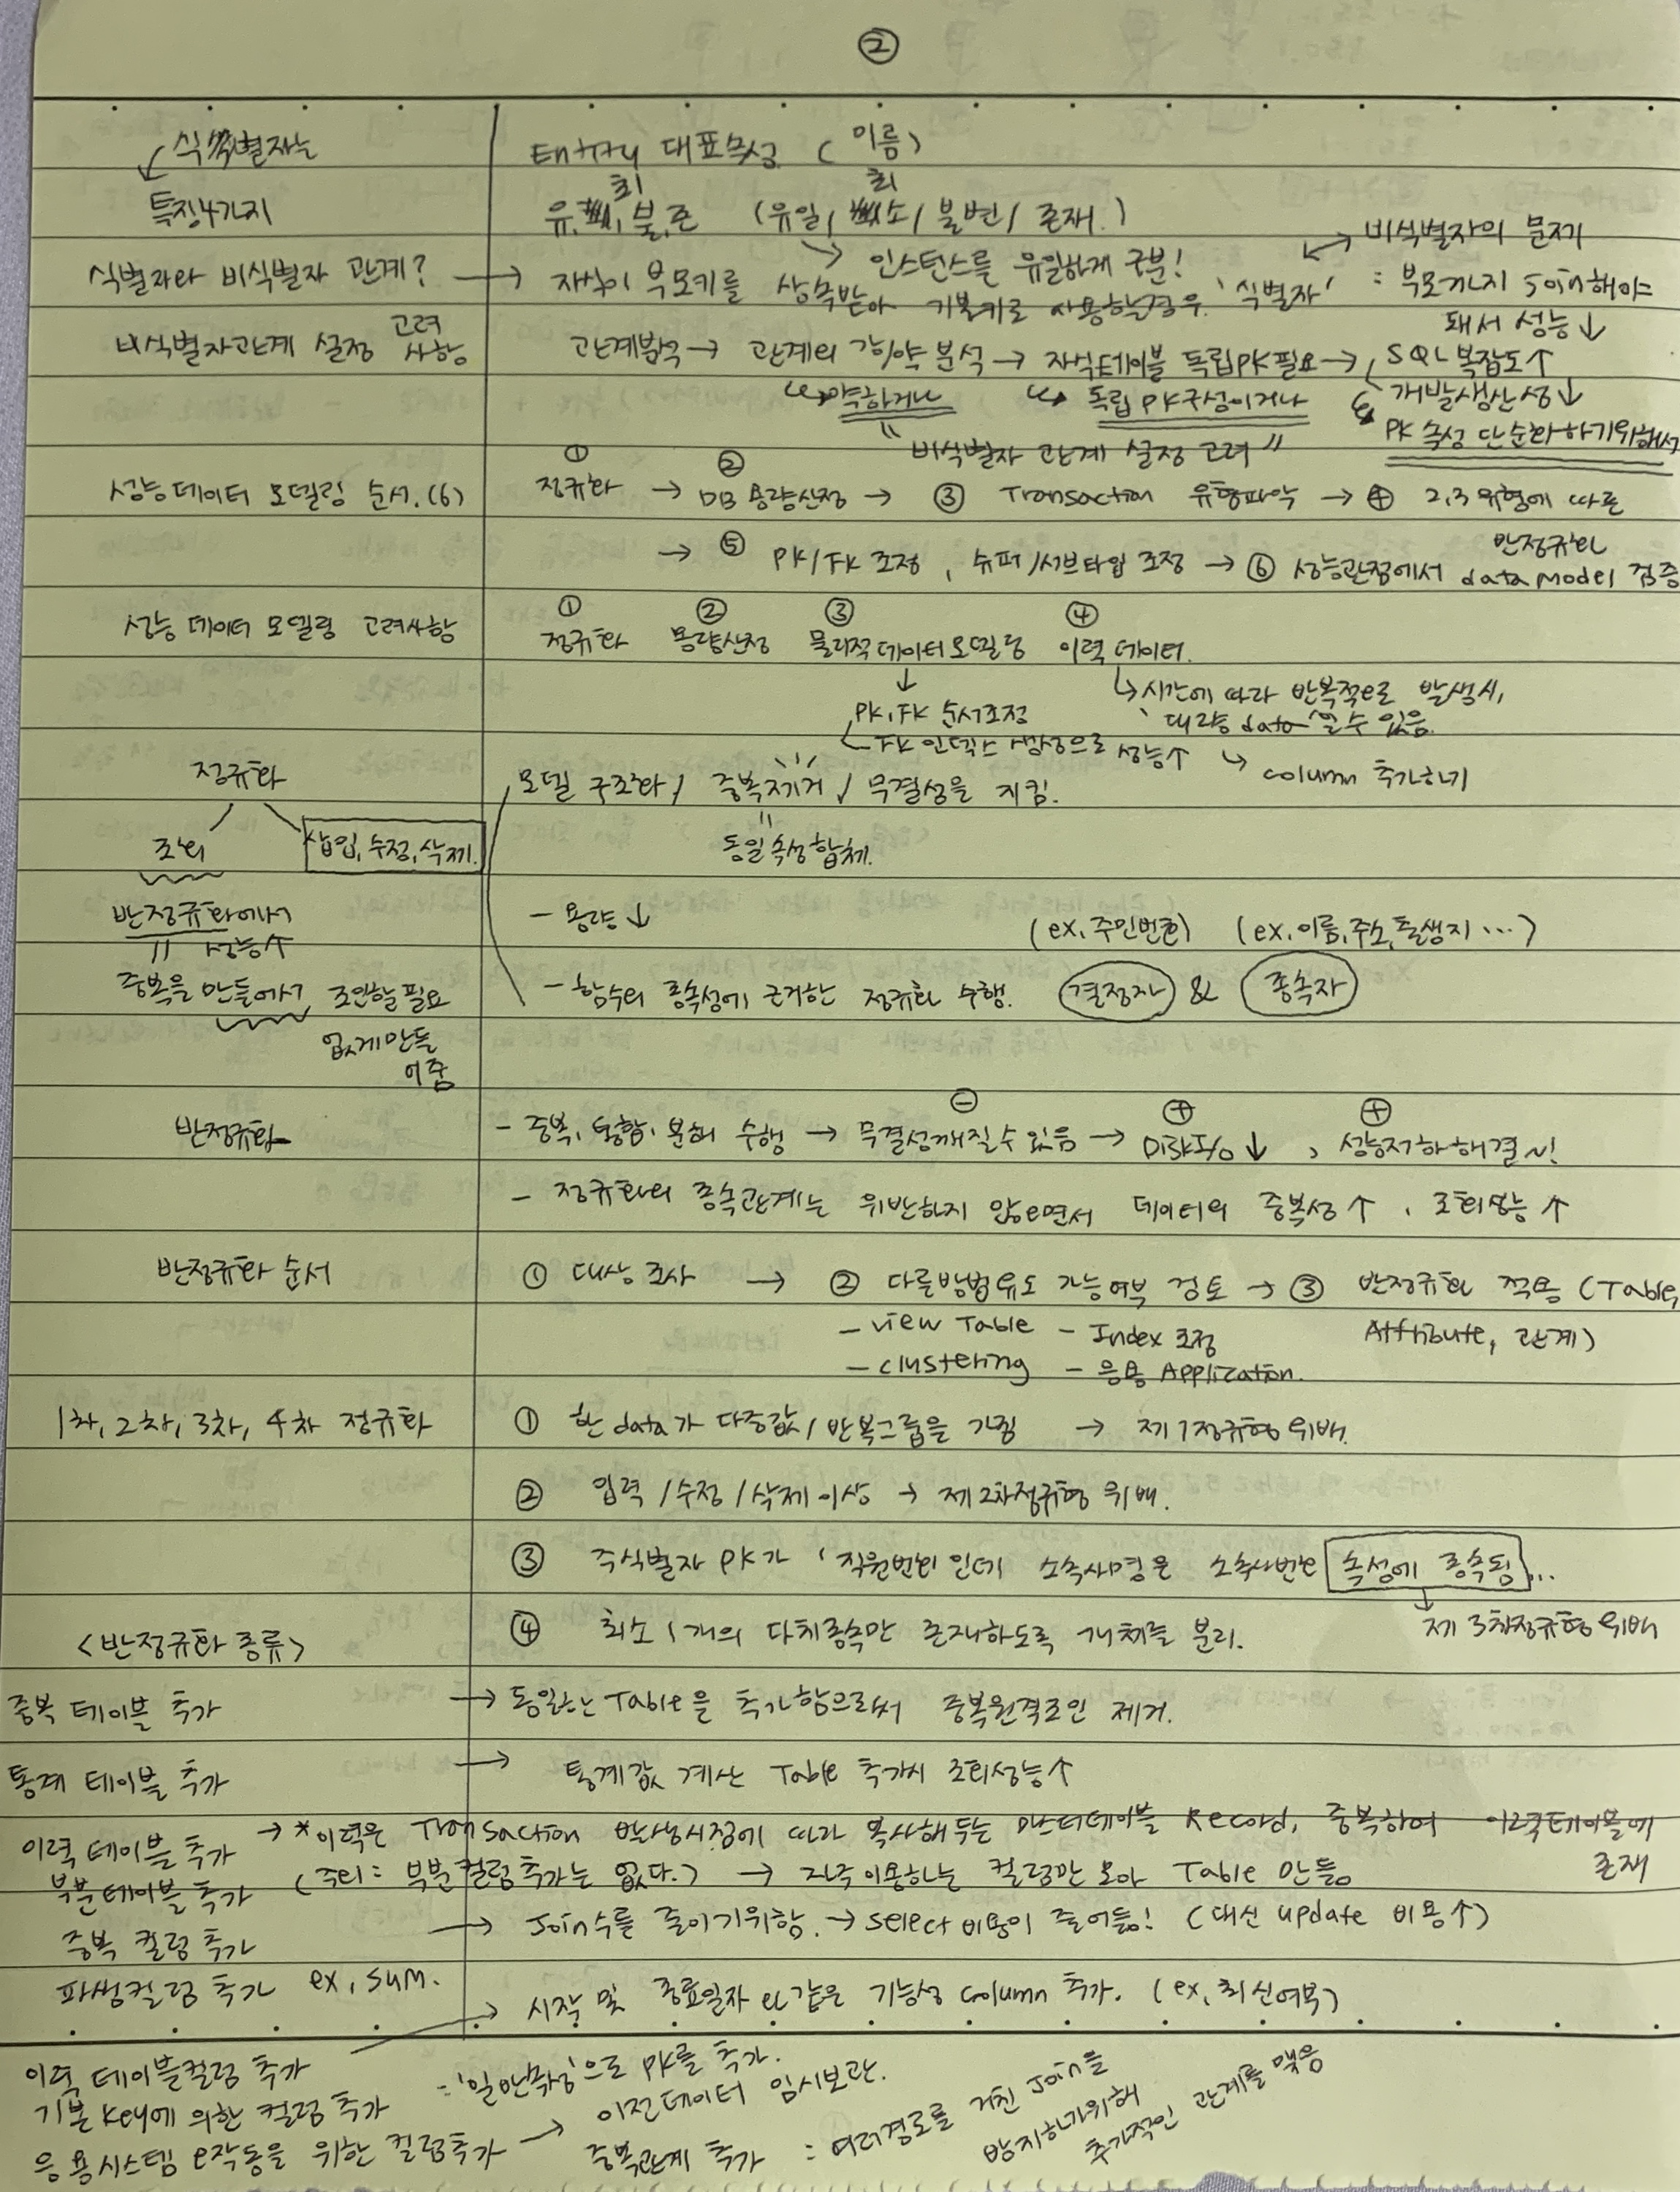 ②
식별자는
Entity 대표속성 ( 이름 )
특징4가지
유,최,불,존 (유일/ 최소/ 불변/ 존재.)
인스턴스를 유일하게 구분!
비식별자의 문제
식별자와 비식별자 관계? → 자식이 부모키를 상속받아 기본키로 사용할경우 '식별자'
: 부모까지 Join해야
돼서 성능↓
비식별자관계 설정 고려사항
관계분석 → 관계의 강/약 분석 → 자식테이블 독립PK필요 → SQL복잡도↑
약하거나
독립 PK구성이거나
개발생산성↓
PK 속성 단순화하기위해서
" 비식별자 관계 설정 고려 "
성능데이터 모델링 순서.(6)
① 정규화 → ② DB용량산정 → ③ Transaction 유형파악 → ④ 2,3유형에 따른 반정규화
→ ⑤ PK/FK 조정, 슈퍼/서브타입 조정 → ⑥ 성능관점에서 data Model 검증
성능 데이터 모델링 고려사항
① 정규화 ② 용량산정 ③ 물리적데이터모델링 ④ 이력데이터.
↓ PK,FK 순서조정
FK인덱스 생성으로 성능↑
시간에 따라 반복적으로 발생시,
대량 data 일 수 있음
column 추가하기
정규화
모델 구조화/ 중복제거/ 무결성을 지킴.
조회
삽입,수정,삭제.
동일속성합체.
반정규화에서
성능↑
- 용량↓
(ex,주민번호) (ex,이름,주소,출생지 …)
중복을 만들어서 조인할필요
없게만들
어줌
- 함수의 종속성에 근거한 정규화 수행. 결정자 & 종속자
반정규화
- 중복, 통합, 분해 수행 → ⊖ 무결성깨질수있음 → ⊕ DISK I/O ↓ , ⊕ 성능저하해결~!
- 정규화의 종속관계는 위반하지 않으면서 데이터의 중복성↑, 조회성능↑
반정규화 순서
① 대상 조사 → ② 다른방법유도 가능여부 검토 → ③ 반정규화 적용 (Table,
- view Table - Index 조정 Attribute, 관계)
- clustering - 응용 Application.
1차, 2차, 3차, 4차 정규화
① 한 data가 다중값/ 반복그룹을 가짐 → 제1정규형위배.
② 입력/수정/삭제이상 → 제2차정규형 위배.
③ 주식별자 PK가 '직원번호'인데 소속사명은 소속사번호 속성에 종속됨…
제 3차정규형위배
④ 최소 1개의 다치종속만 존재하도록 개체를 분리.
<반정규화 종류>
중복 테이블 추가 → 동일한 Table을 추가함으로써 중복원격조인 제거.
통계 테이블 추가 → 통계값 계산 Table 추가시 조회성능↑
이력 테이블 추가 → *이력은 Transaction 발생시점에 따라 복사해두는 마스터테이블 Record, 중복하여 이력테이블에 존재
부분테이블 추가 (주의: 부분컬럼추가는 없다.) → 자주이용하는 컬럼만 모아 Table 만듦
중복 컬럼 추가 → Join수를 줄이기위함. → select 비용이 줄어듦! (대신 update 비용↑)
파생컬럼 추가 ex, sum.
이력 테이블컬럼 추가 → 시작 및 종료일자 같은 기능성 column 추가. (ex,최신여부)
기본key에 의한 컬럼 추가 : '일반속성'으로 PK를 추가.
응용시스템 오작동을 위한 컬럼추가 → 이전데이터 임시보관.
중복관계 추가 : 여러경로를 거친 Join을
방지하기위해
추가적인 관계를 맺음